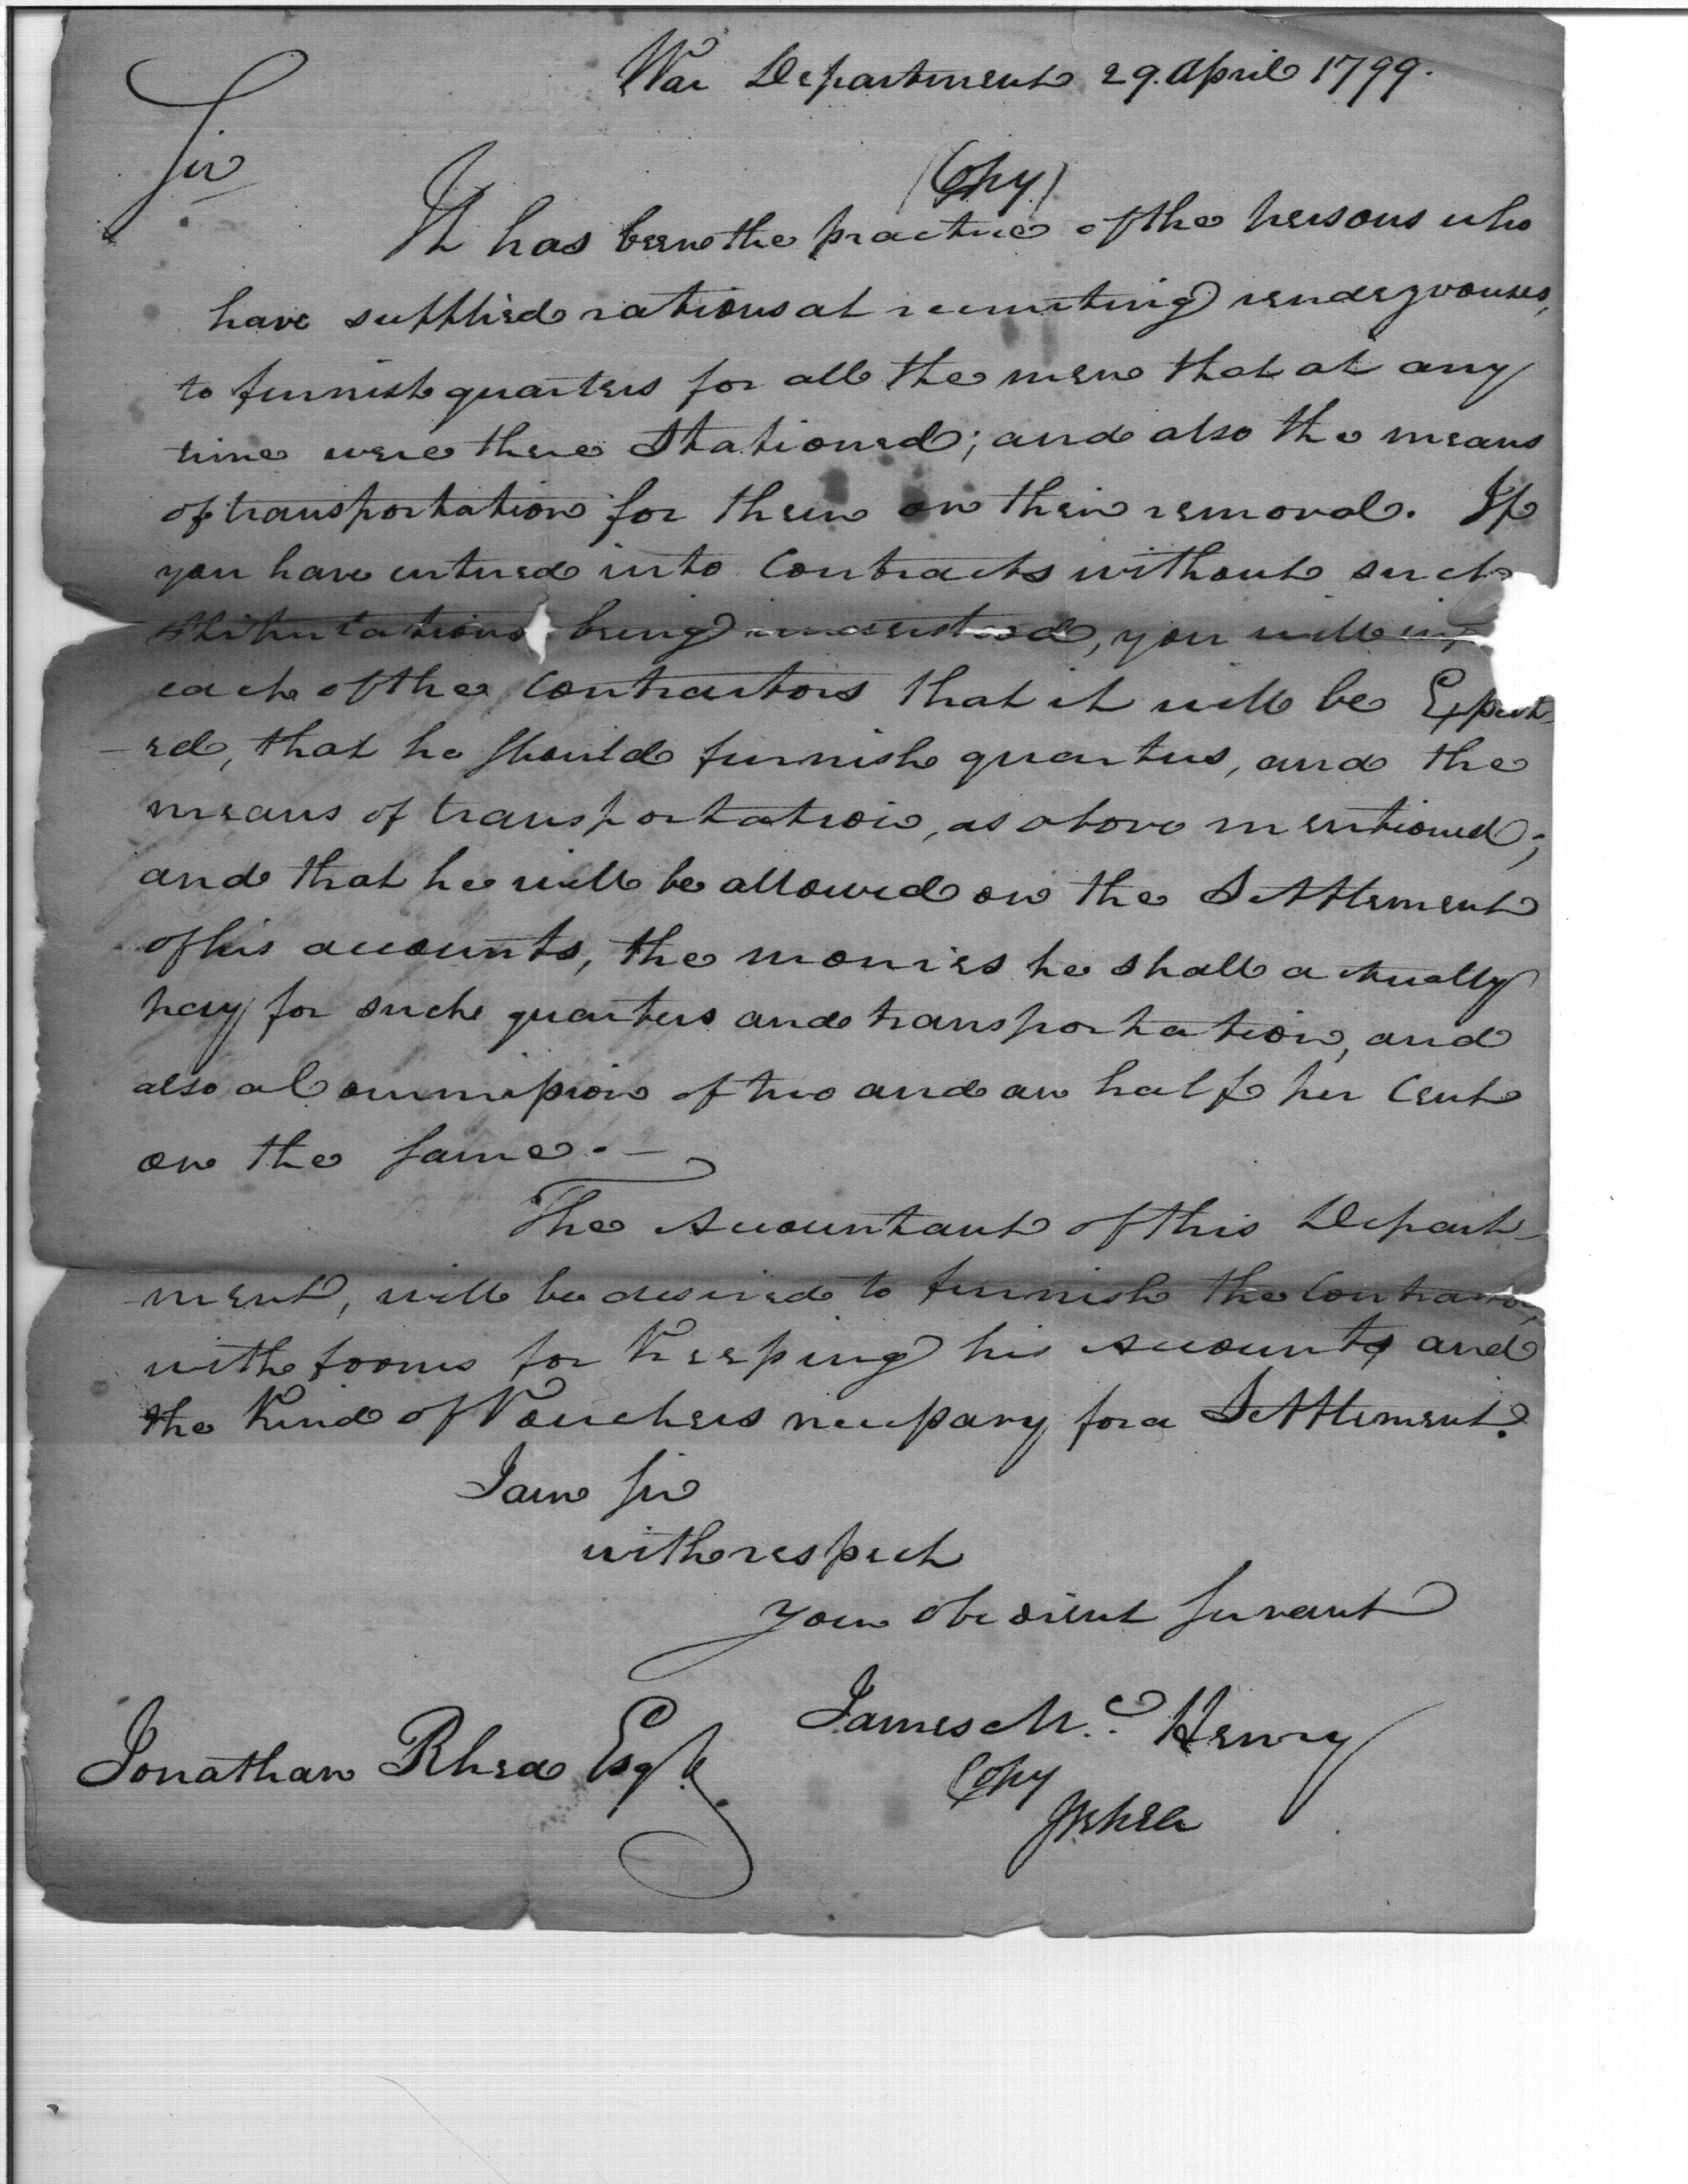 War Department 29. April 1799.
Sir
(Copy)
It has been the practice of the persons who
have supplied rations at recruiting rendezvouses,
to furnish quarters for all the men that at any
time were there Stationed; and also the means
of transportation for them on their removal. If
you have entered into Contracts without such
Stipulations being understood, you will
each of the Contractors that it will be Expect-
-ed, that he should furnish quarters, and the
means of transportation, as above mentioned;
and that he will be allowed on the Settlement
of his accounts, the monies he shall actually
pay for such quarters and transportation, and
also a Commission of two and an half per Cent
on the same. —
The Accountant of this Depart-
-ment, will be desired to furnish the Contractor,
with forms for Keeping his Accounts and
the Kind of Vouchers necessary for a Settlement.
I am Sir
with respect
your obedient Servant
James Mc. Henry
Jonathan Rhea Esqr.
Copy
JRhea